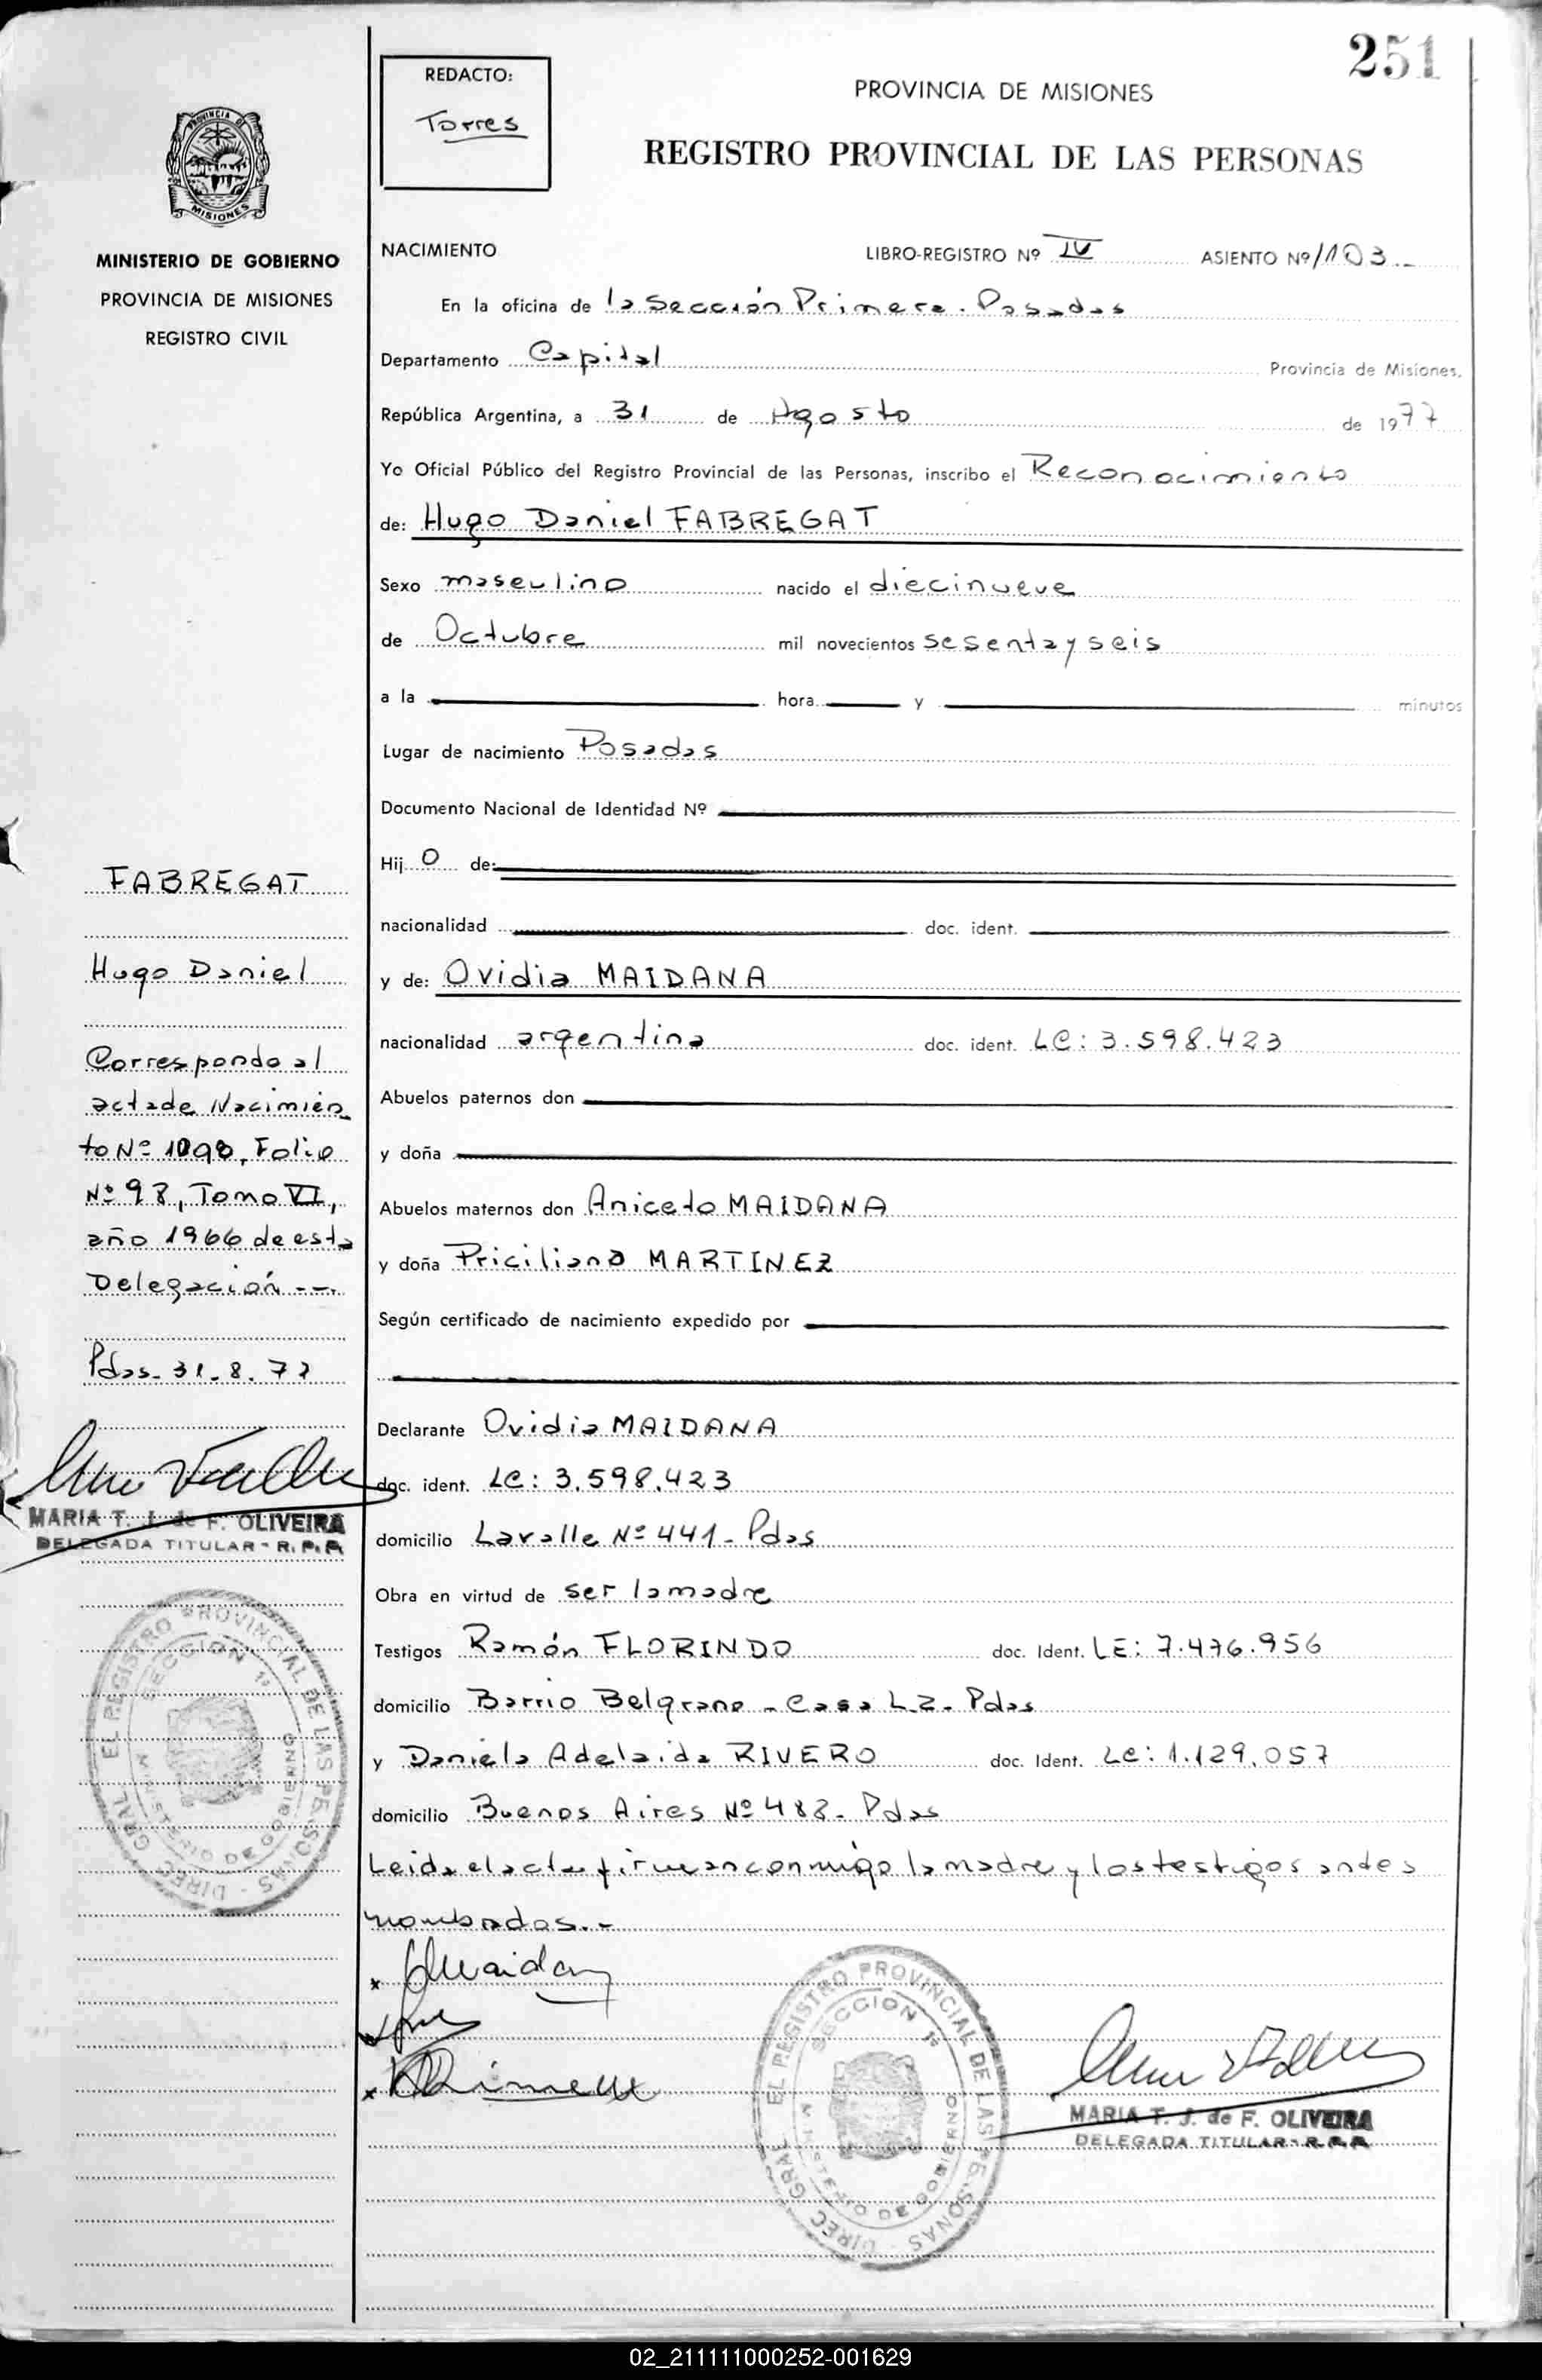 251
REDACTO:
Torres
PROVINCIA DE MISIONES
REGISTRO PROVINCIAL DE LAS PERSONAS
PROVINCIA DE
MISIONES
MINISTERIO DE GOBIERNO
PROVINCIA DE MISIONES
REGISTRO CIVIL
NACIMIENTO LIBRO-REGISTRO Nº IV ASIENTO Nº 1103.-
En la oficina de la Sección Primera. Posadas
Departamento Capital Provincia de Misiones,
República Argentina, a 31 de Agosto de 1977
Yo Oficial Público del Registro Provincial de las Personas, inscribo el Reconocimiento
de: Hugo Daniel FABREGAT
Sexo masculino nacido el diecinueve
de Octubre mil novecientos sesenta y seis
a la hora y minutos
Lugar de nacimiento Posadas
Documento Nacional de Identidad Nº
Hij o de:
nacionalidad doc. ident.
y de: Ovidia MAIDANA
nacionalidad argentina doc. ident. LC: 3.598.423
Abuelos paternos don
y doña
Abuelos maternos don Aniceto MAIDANA
y doña Priciliana MARTINEZ
Según certificado de nacimiento expedido por
Declarante Ovidia MAIDANA
doc. ident. LC: 3.598.423
domicilio Lavalle Nº 441 - Pdas
Obra en virtud de ser la madre
Testigos Ramón FLORINDO doc. Ident. LE: 7.476.956
domicilio Barrio Belgrano - Casa - Pdas
y Daniela Adelaida RIVERO doc. Ident. LC: 1.129.057
domicilio Buenos Aires Nº - Pdas
Leida el acta firman conmigo la madre y los testigos antes
nombrados.-
FABREGAT
Hugo Daniel
Corresponde al
acta de Nacimien
to Nº Folio
Nº Tomo VI,
año 1966 de esta
Delegación ---
Pdas. 31.8.77
MARIA T. J. de F. OLIVEIRA
DELEGADA TITULAR - R. P. P.
DIREC GRAL EL REGISTRO PROVINCIAL DE LAS PERSONAS
SECCION 1ª
MINISTERIO DE GOBIERNO
DIREC GRAL EL REGISTRO PROVINCIAL DE LAS PERSONAS
SECCION 1ª
MINISTERIO DE GOBIERNO
MARIA T. J. de F. OLIVEIRA
DELEGADA TITULAR - R. P. P.
02_211111000252-001629